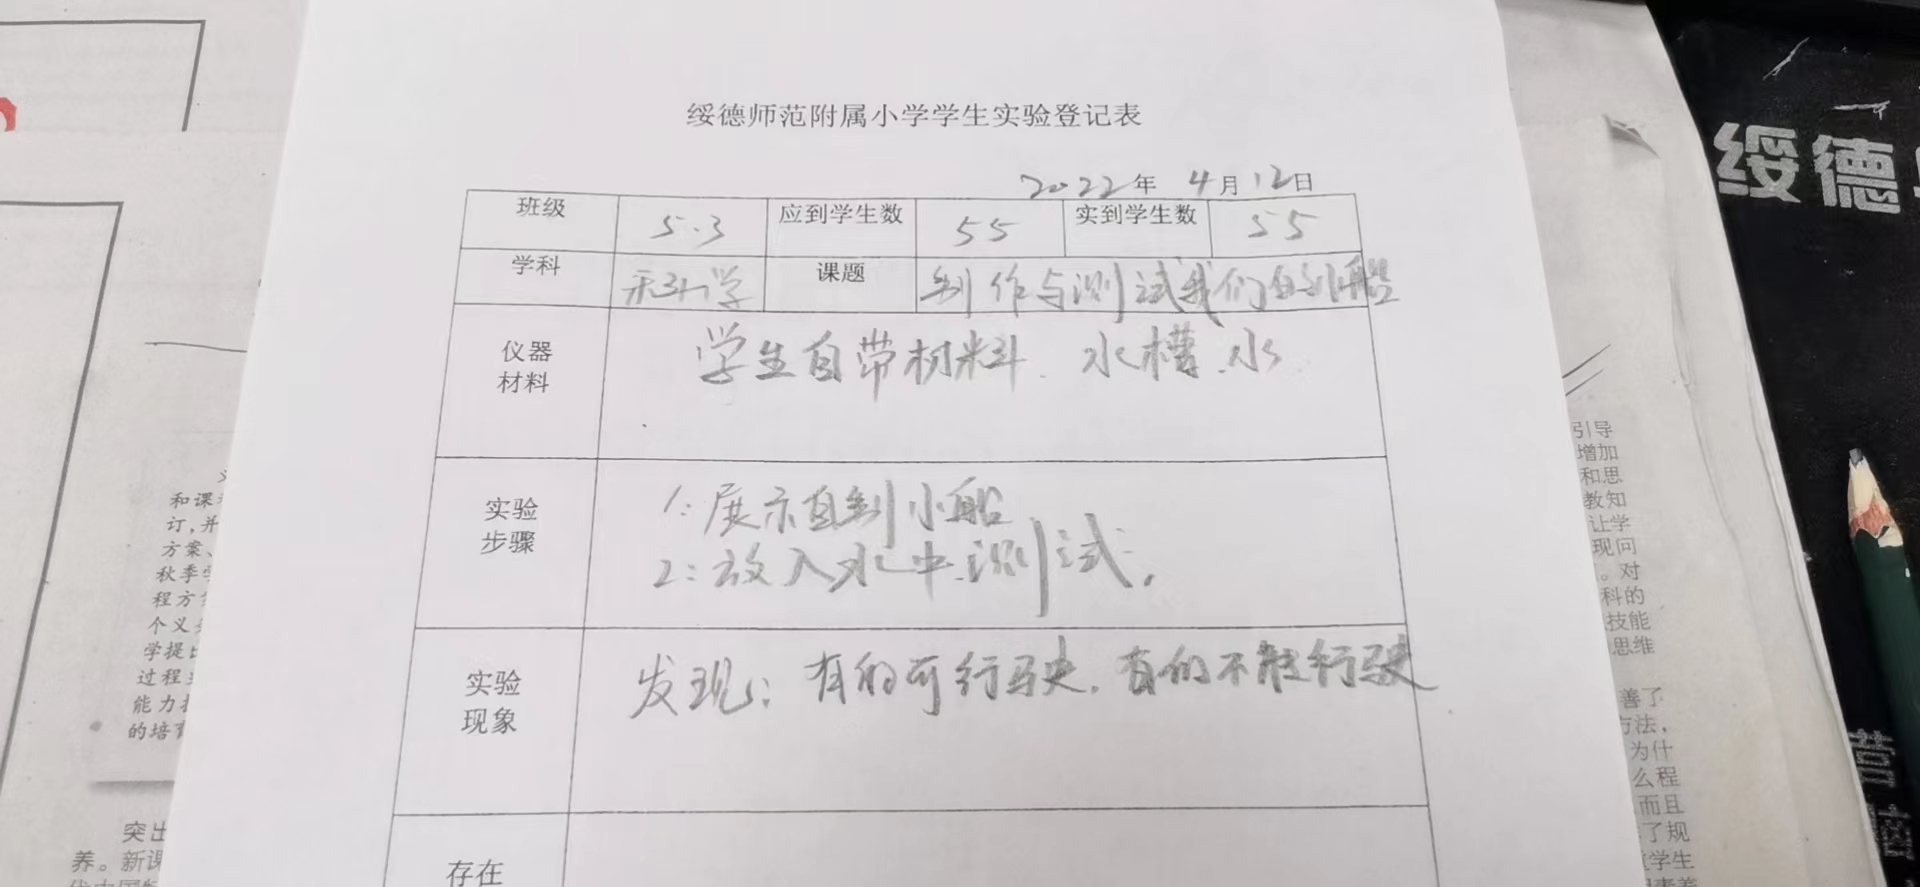 绥德师范附属小学学生实验登记表
2022年 4月12日
班级 5.3 应到学生数 55 实到学生数 55
学科 科学 课题 制作与测试我们的小船
仪器
材料
学生自带材料、水槽、水
实验
步骤
1:展示自制小船
2:放入水中测试。
实验
现象
发现:有的可行驶,有的不能行驶
存在
绥德
和课
订,并
方案、
秋季
程方
个义
学提
过程
能力
的培育
突出
养。新课
引导
增加
和思
教知
让学
现问
。对
科的
技能
思维
善了
方法,
为什
么程
而且
了规
学生